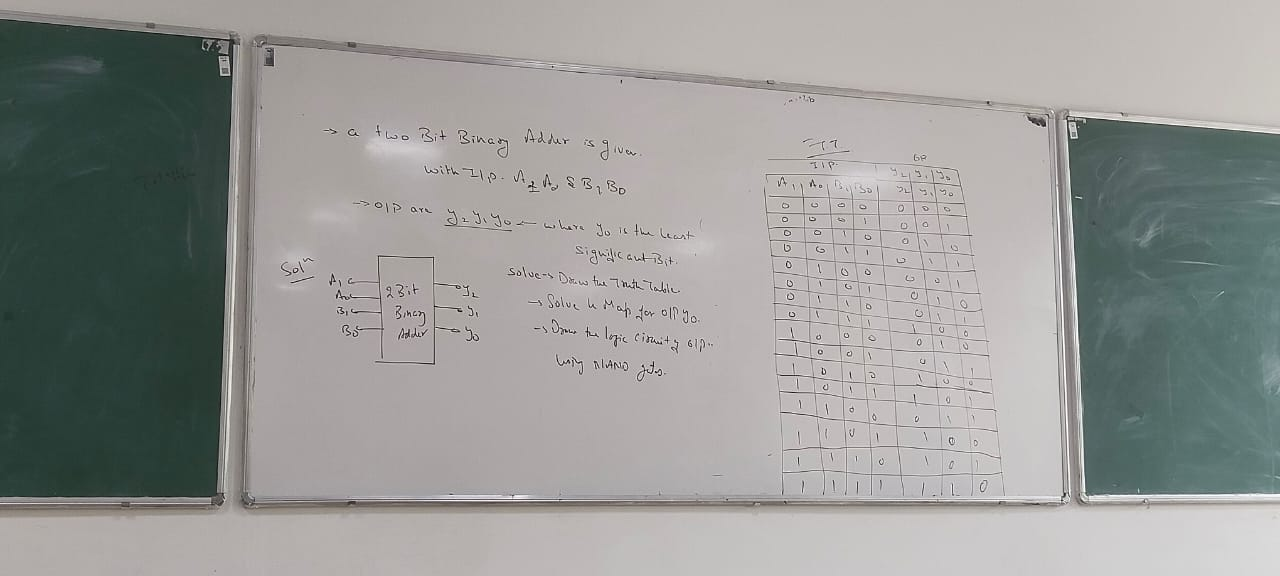 → a two Bit Binary Adder is given.
with I/p. A1 A0 & B1 B0
→ O/P are y2 y1 y0 ← where y0 is the least
significant Bit.
Soln
A1
A0
B1
B0
2Bit
Binary
Adder
y2
y1
y0
solve → Draw the Truth Table
→ Solve K Map for O/P y0.
→ Draw the logic circuit of O/P..
Using NAND gates.
T.T
I/P O/P
y2 y1 y0
A1 A0 B1 B0 y2 y1 y0
0 0 0 0 0 0 0
0 0 0 1 0 0 1
0 0 1 0 0 1 0
0 0 1 1 0 1 1
0 1 0 0 0 0 1
0 1 0 1 0 1 0
0 1 1 0 0 1 1
0 1 1 1 1 0 0
1 0 0 0 0 1 0
1 0 0 1 0 1 1
1 0 1 0 1 0 0
1 0 1 1 1 0 1
1 1 0 0 0 1 1
1 1 0 1 1 0 0
1 1 1 0 1 0 1
1 1 1 1 1 1 0